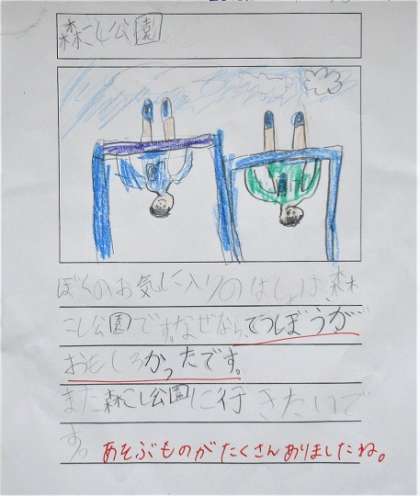 森こし公園
ぼくのお気に入りのばしょは、森
こし公園です。なぜなら、てつぼうが
おもしろかったです。
また森こし公園に行きたいで
す。
あそぶものがたくさんありましたね。